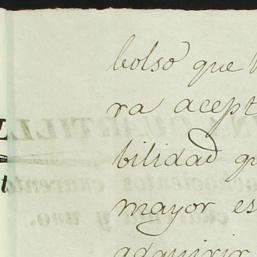 bolso que
ra acept
bilidad q
mayor es
adquirir
L
t